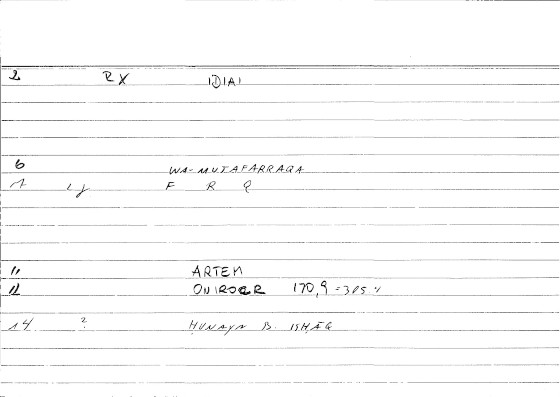 2 RX IDIAI
6 WA-MUTAFARRAQA
1 F R Q
11 ARTEM
11 ONIROCR 170,9 = 325
14 ? ḤUNAYN B. ISḤĀQ